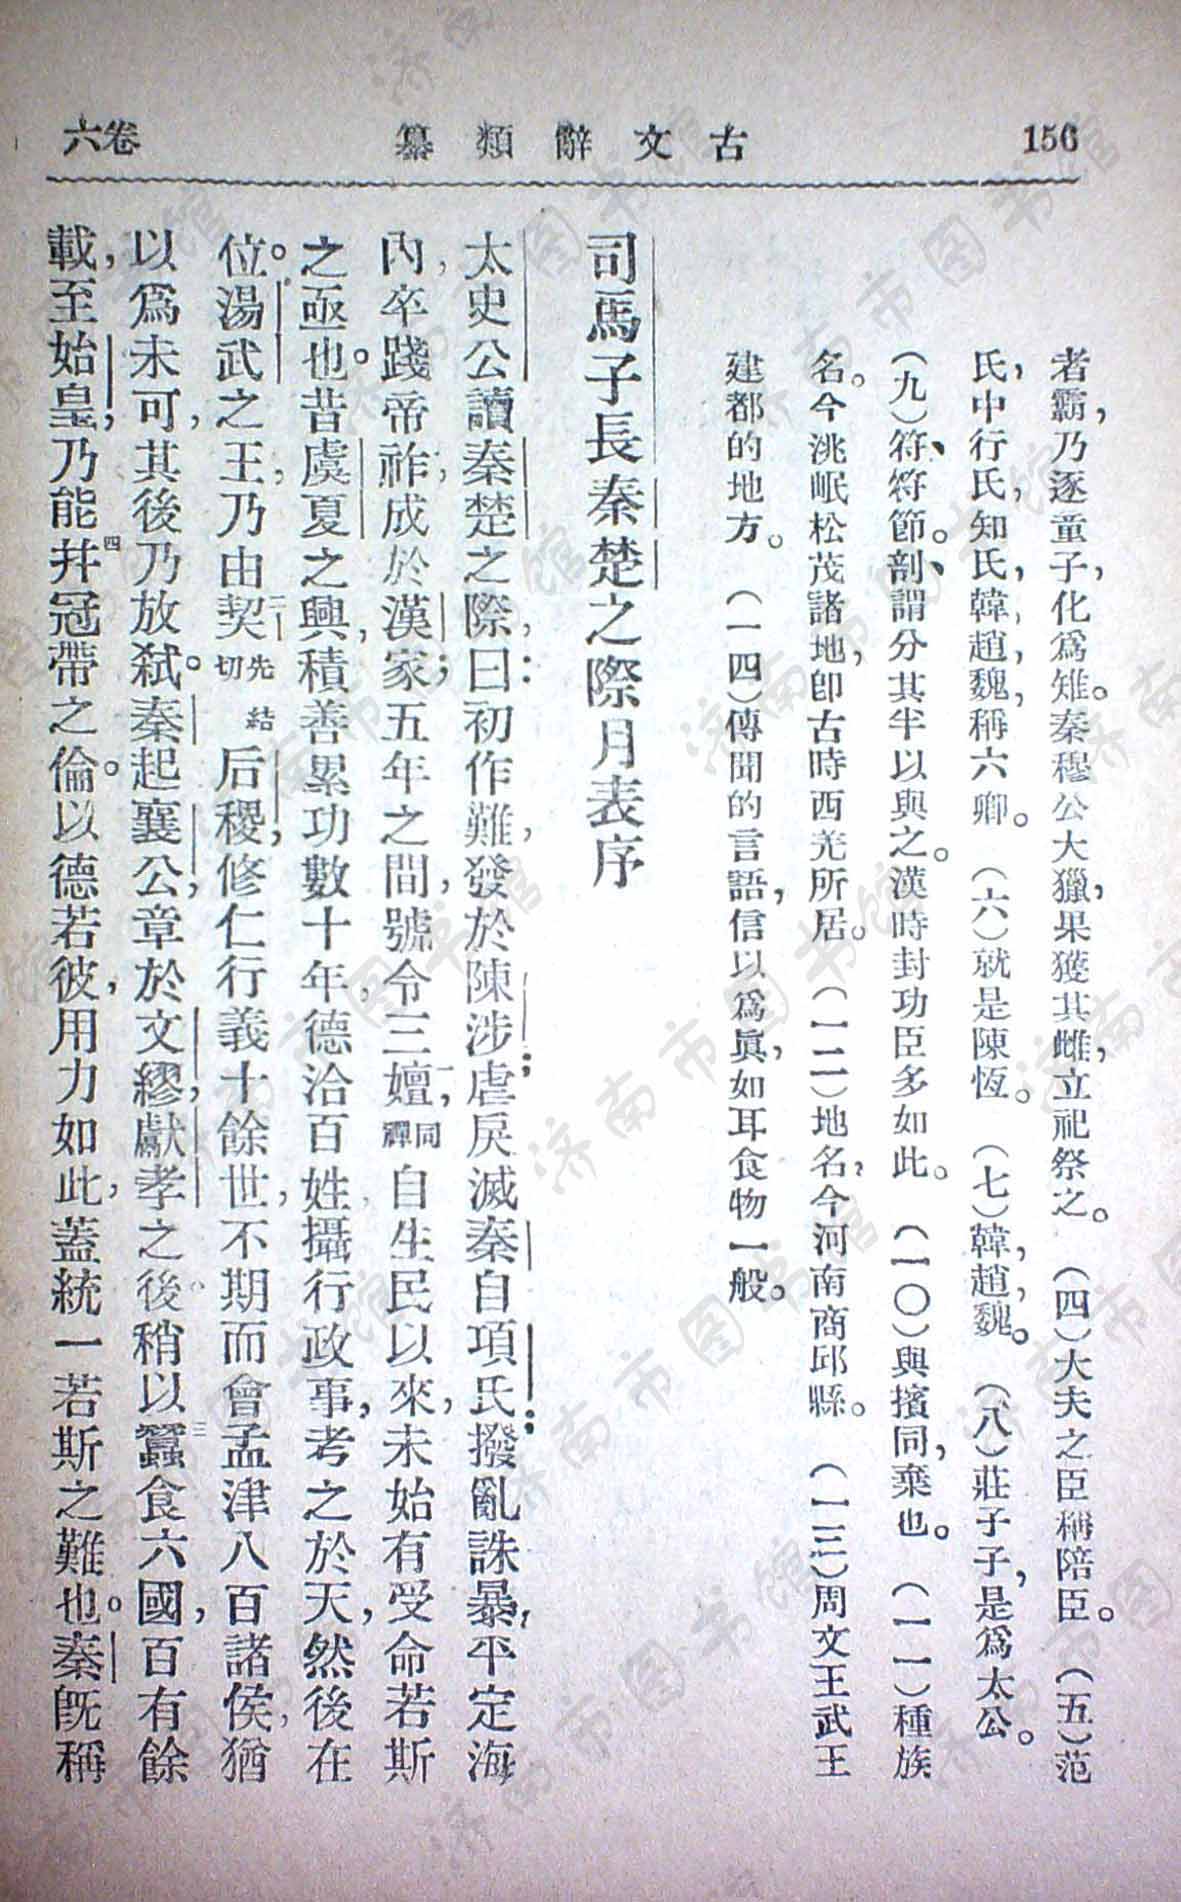 156
古文辭類纂
卷六
者霸，乃逐童子，化爲雉。秦穆公大獵，果獲其雌，立祀祭之。（四）大夫之臣稱陪臣。（五）范
氏，中行氏，知氏，韓，趙，魏，稱六卿。（六）就是陳恆。（七）韓，趙，魏。（八）莊子子，是爲太公。
（九）符、符節。剖、謂分其半以與之。漢時封功臣多如此。（一〇）與擯同，棄也。（一一）種族
名。今洮岷松茂諸地，卽古時西羌所居。（一二）地名，今河南商邱縣。（一三）周文王武王
建都的地方。（一四）傳聞的言語，信以爲眞，如耳食物一般。
司馬子長秦楚之際月表序
太史公讀秦楚之際，曰：初作難，發於陳涉；虐戾滅秦自項氏；撥亂誅暴，平定海
內，卒踐帝祚，成於漢家；五年之間，號令三嬗，一同禪自生民以來，未始有受命若斯
之亟也。昔虞夏之興，積善累功數十年，德洽百姓，攝行政事，考之於天，然後在
位。湯武之王，乃由契二先結切后稷，修仁行義十餘世，不期而會孟津八百諸侯，猶
以爲未可，其後乃放弒。秦起襄公，章於文繆，獻孝之後。稍以蠶三食六國，百有餘
載，至始皇，乃能幷四冠帶之倫。以德若彼，用力如此，蓋統一若斯之難也。秦旣稱
济南市图书馆